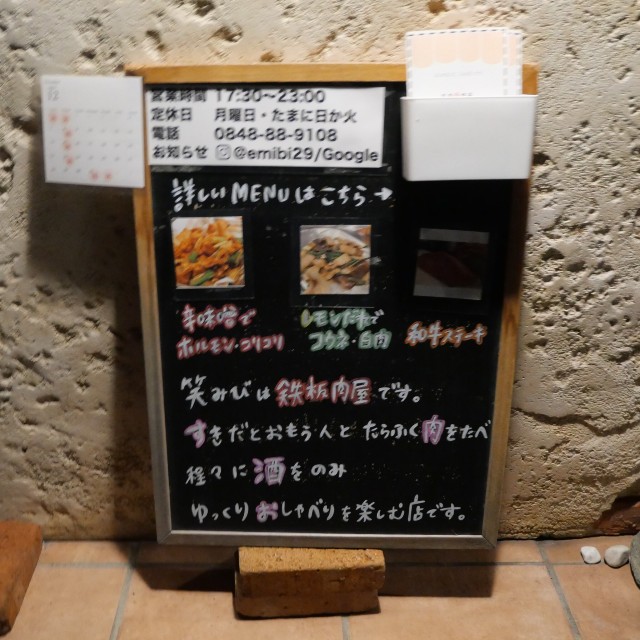 営業時間 17:30〜23:00
定休日 月曜日・たまに日か火
電話 0848-88-9108
お知らせ @emibi29/Google
詳しいMENUはこちら→
辛味噌で
ホルモン・コリコリ
レモン汁で
コウネ・白肉
和牛ステーキ
笑みびは鉄板肉屋です。
すきだとおもう人と たらふく肉をたべ
程々に酒をのみ
ゆっくりおしゃべりを楽しむ店です。